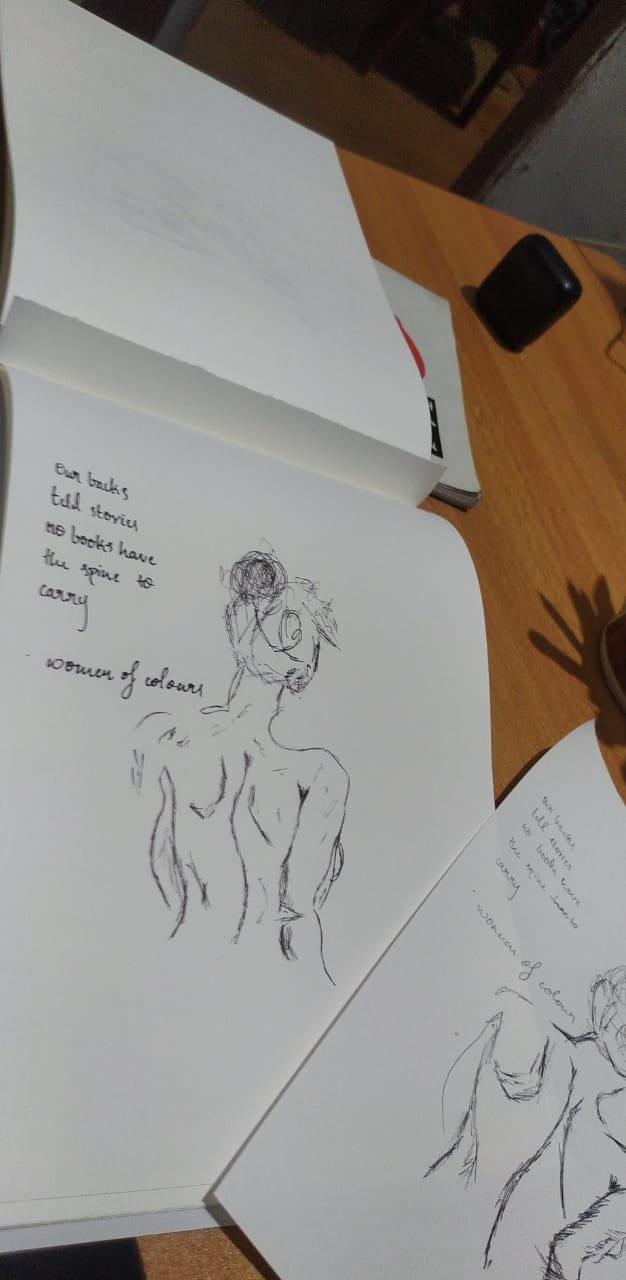 Our backs
tell stories
no books have
the spine to
carry
- women of colours
our backs
tell stories
no books have
the spine
carry
- women of colour